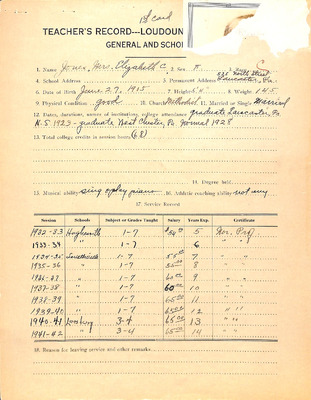 1st card
TEACHER'S RECORD---LOUDOUN
GENERAL AND SCHO
1. Name Jones, Mrs. Elizabeth C. 2. Sex F. 3. Race C
4. School Address 5. Permanent Address North Street Lancaster, Pa.
6. Date of Birth June 27, 1905 7. Height 5' 8. Weight 145
9. Physical Condition good 10. Church Methodist 11. Married or Single Married
12. Dates, durations, names of institutions, college attendance graduate Lancaster, Pa
H. S. 1923 - graduate West Chester, Pa Normal 1928
13. Total college credits in session hours (68)
14. Degree held
15. Musical ability sing & play piano 16. Athletic coaching ability not any
17. Service Record
Session Schools Subject or Grades Taught Salary Years Exp. Certificate
1932-33 Hughesville 1-7 5 Nor. Prof.
1933-34 " 1-7 6 " "
1934-35 1-7 7 " "
1935-36 " 1-7 8 " "
1936-37 " 1-7 60.00 9 " "
1937-38 " 1-7 60.00 10 " "
1938-39 " 1-7 65.00 11 " "
1939-40 " 1-7 65.00 12 " "
1940-41 Leesburg 3-4 65.00 13 " "
1941-42 " 3-4 65.00 14 " "
18. Reason for leaving service and other remarks